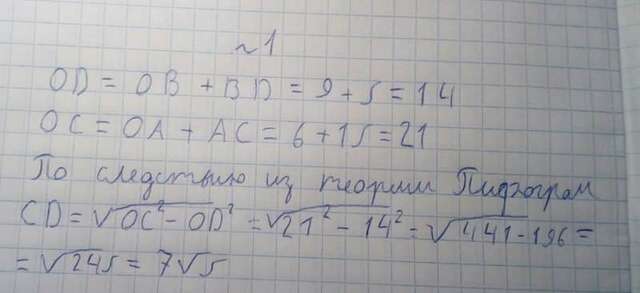 ~1
OD = OB + BD = 9 + 5 = 14
OC = OA + AC = 6 + 15 = 21
По следствию из теории Пифагорам
CD = √OC² - OD² = √21² - 14² = √441 - 196 =
= √245 = 7√5